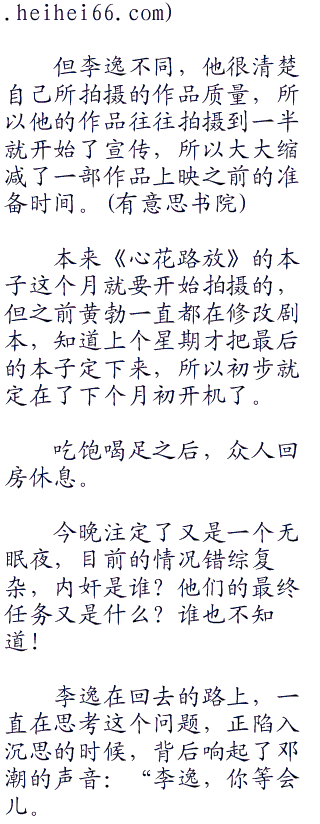 .heihei66.com)
但李逸不同，他很清楚
自己所拍摄的作品质量，所
以他的作品往往拍摄到一半
就开始了宣传，所以大大缩
减了一部作品上映之前的准
备时间。(有意思书院)
本来《心花路放》的本
子这个月就要开始拍摄的，
但之前黄勃一直都在修改剧
本，知道上个星期才把最后
的本子定下来，所以初步就
定在了下个月初开机了。
吃饱喝足之后，众人回
房休息。
今晚注定了又是一个无
眠夜，目前的情况错综复
杂，内奸是谁？他们的最终
任务又是什么？谁也不知
道！
李逸在回去的路上，一
直在思考这个问题，正陷入
沉思的时候，背后响起了邓
潮的声音：“李逸，你等会
儿。